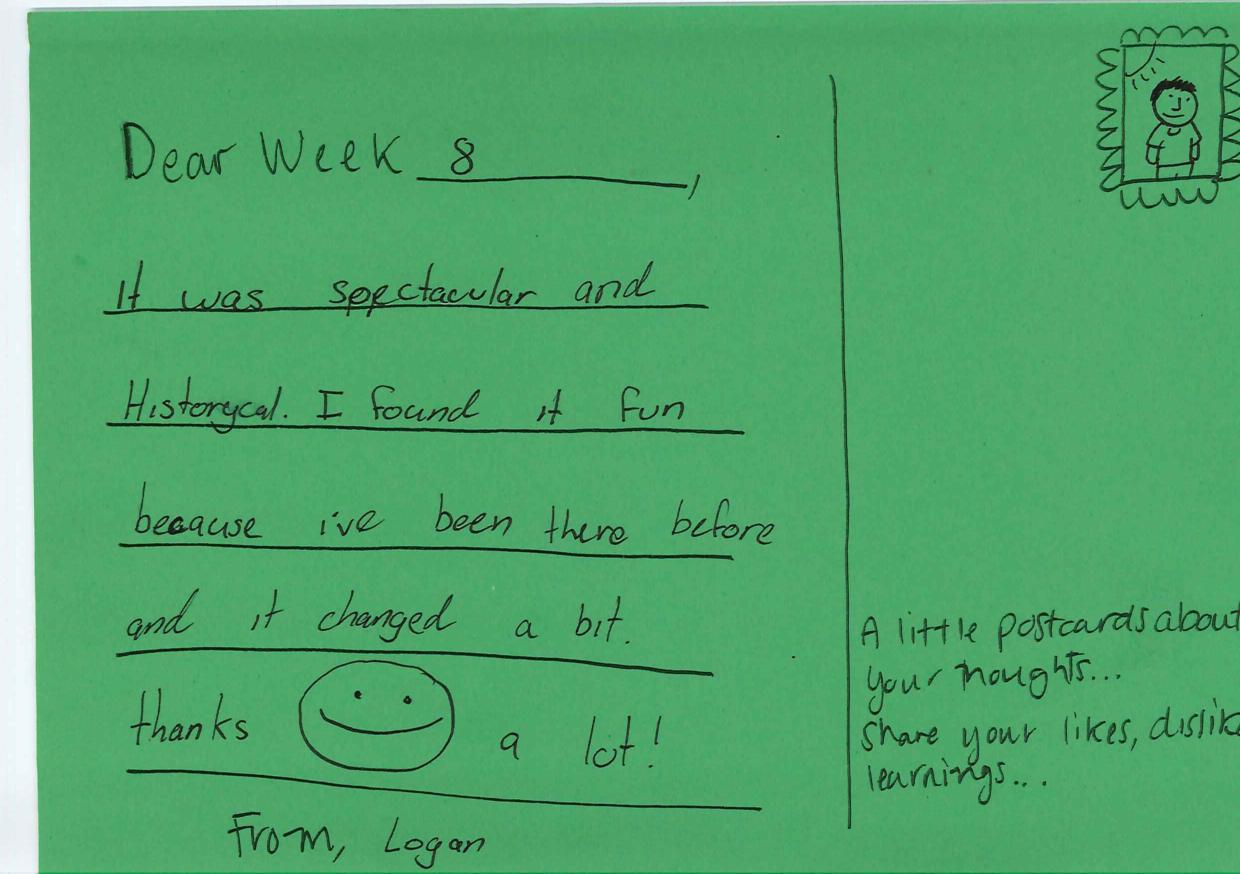 Dear Week 8,
it was spectacular and
Historycal. I found it fun
because i've been there before
and it changed a bit.
thanks a lot!
From, Logan
A little postcards about
your thoughts...
Share your likes, dislike
learnings...